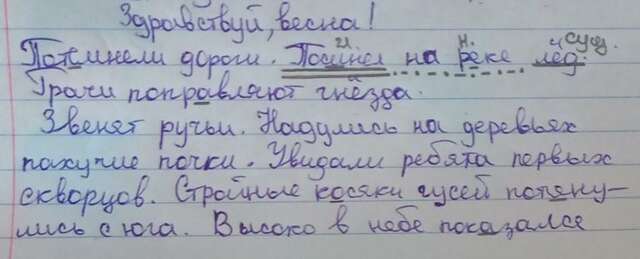 Здравствуй, весна!
Потемнели дороги. Посинел на реке лёд.
Грачи поправляют гнёзда.
Звенят ручьи. Надулись на деревьях
пахучие почки. Увидали ребята первых
скворцов. Стройные косяки гусей потяну-
лись с юга. Высоко в небе показался